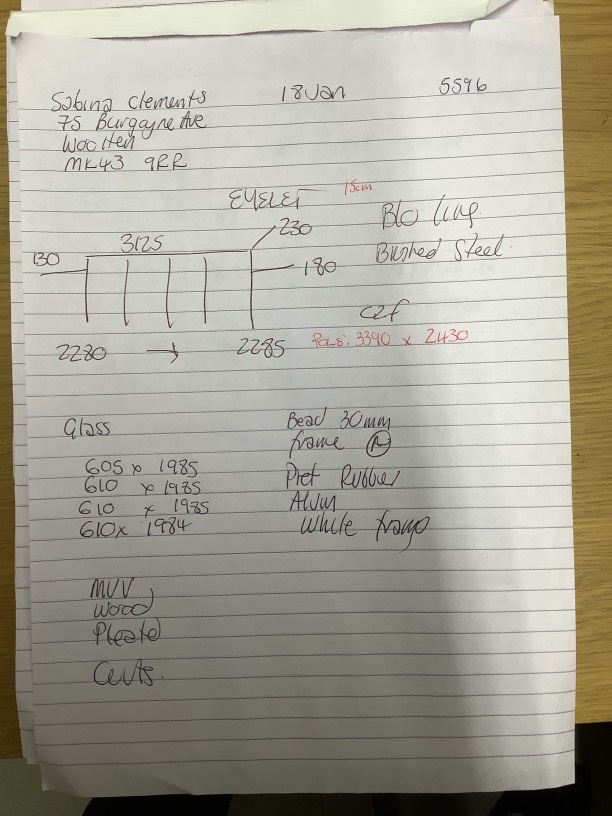 Sabina Clements 18 Jan 5596
75 Burgoyne Ave
Wootten
MK43 9RR
EYELET 15cm
B/O Ling
Brushed Steel
3125 230
130 180
2280 → 2285
C2F
3390 x 2430
Glass
605 x 1985
610 x 1985
610 x 1985
610 x 1984
Bead 30mm
frame
Rubber
Alum
White frame
Wood
Pleated